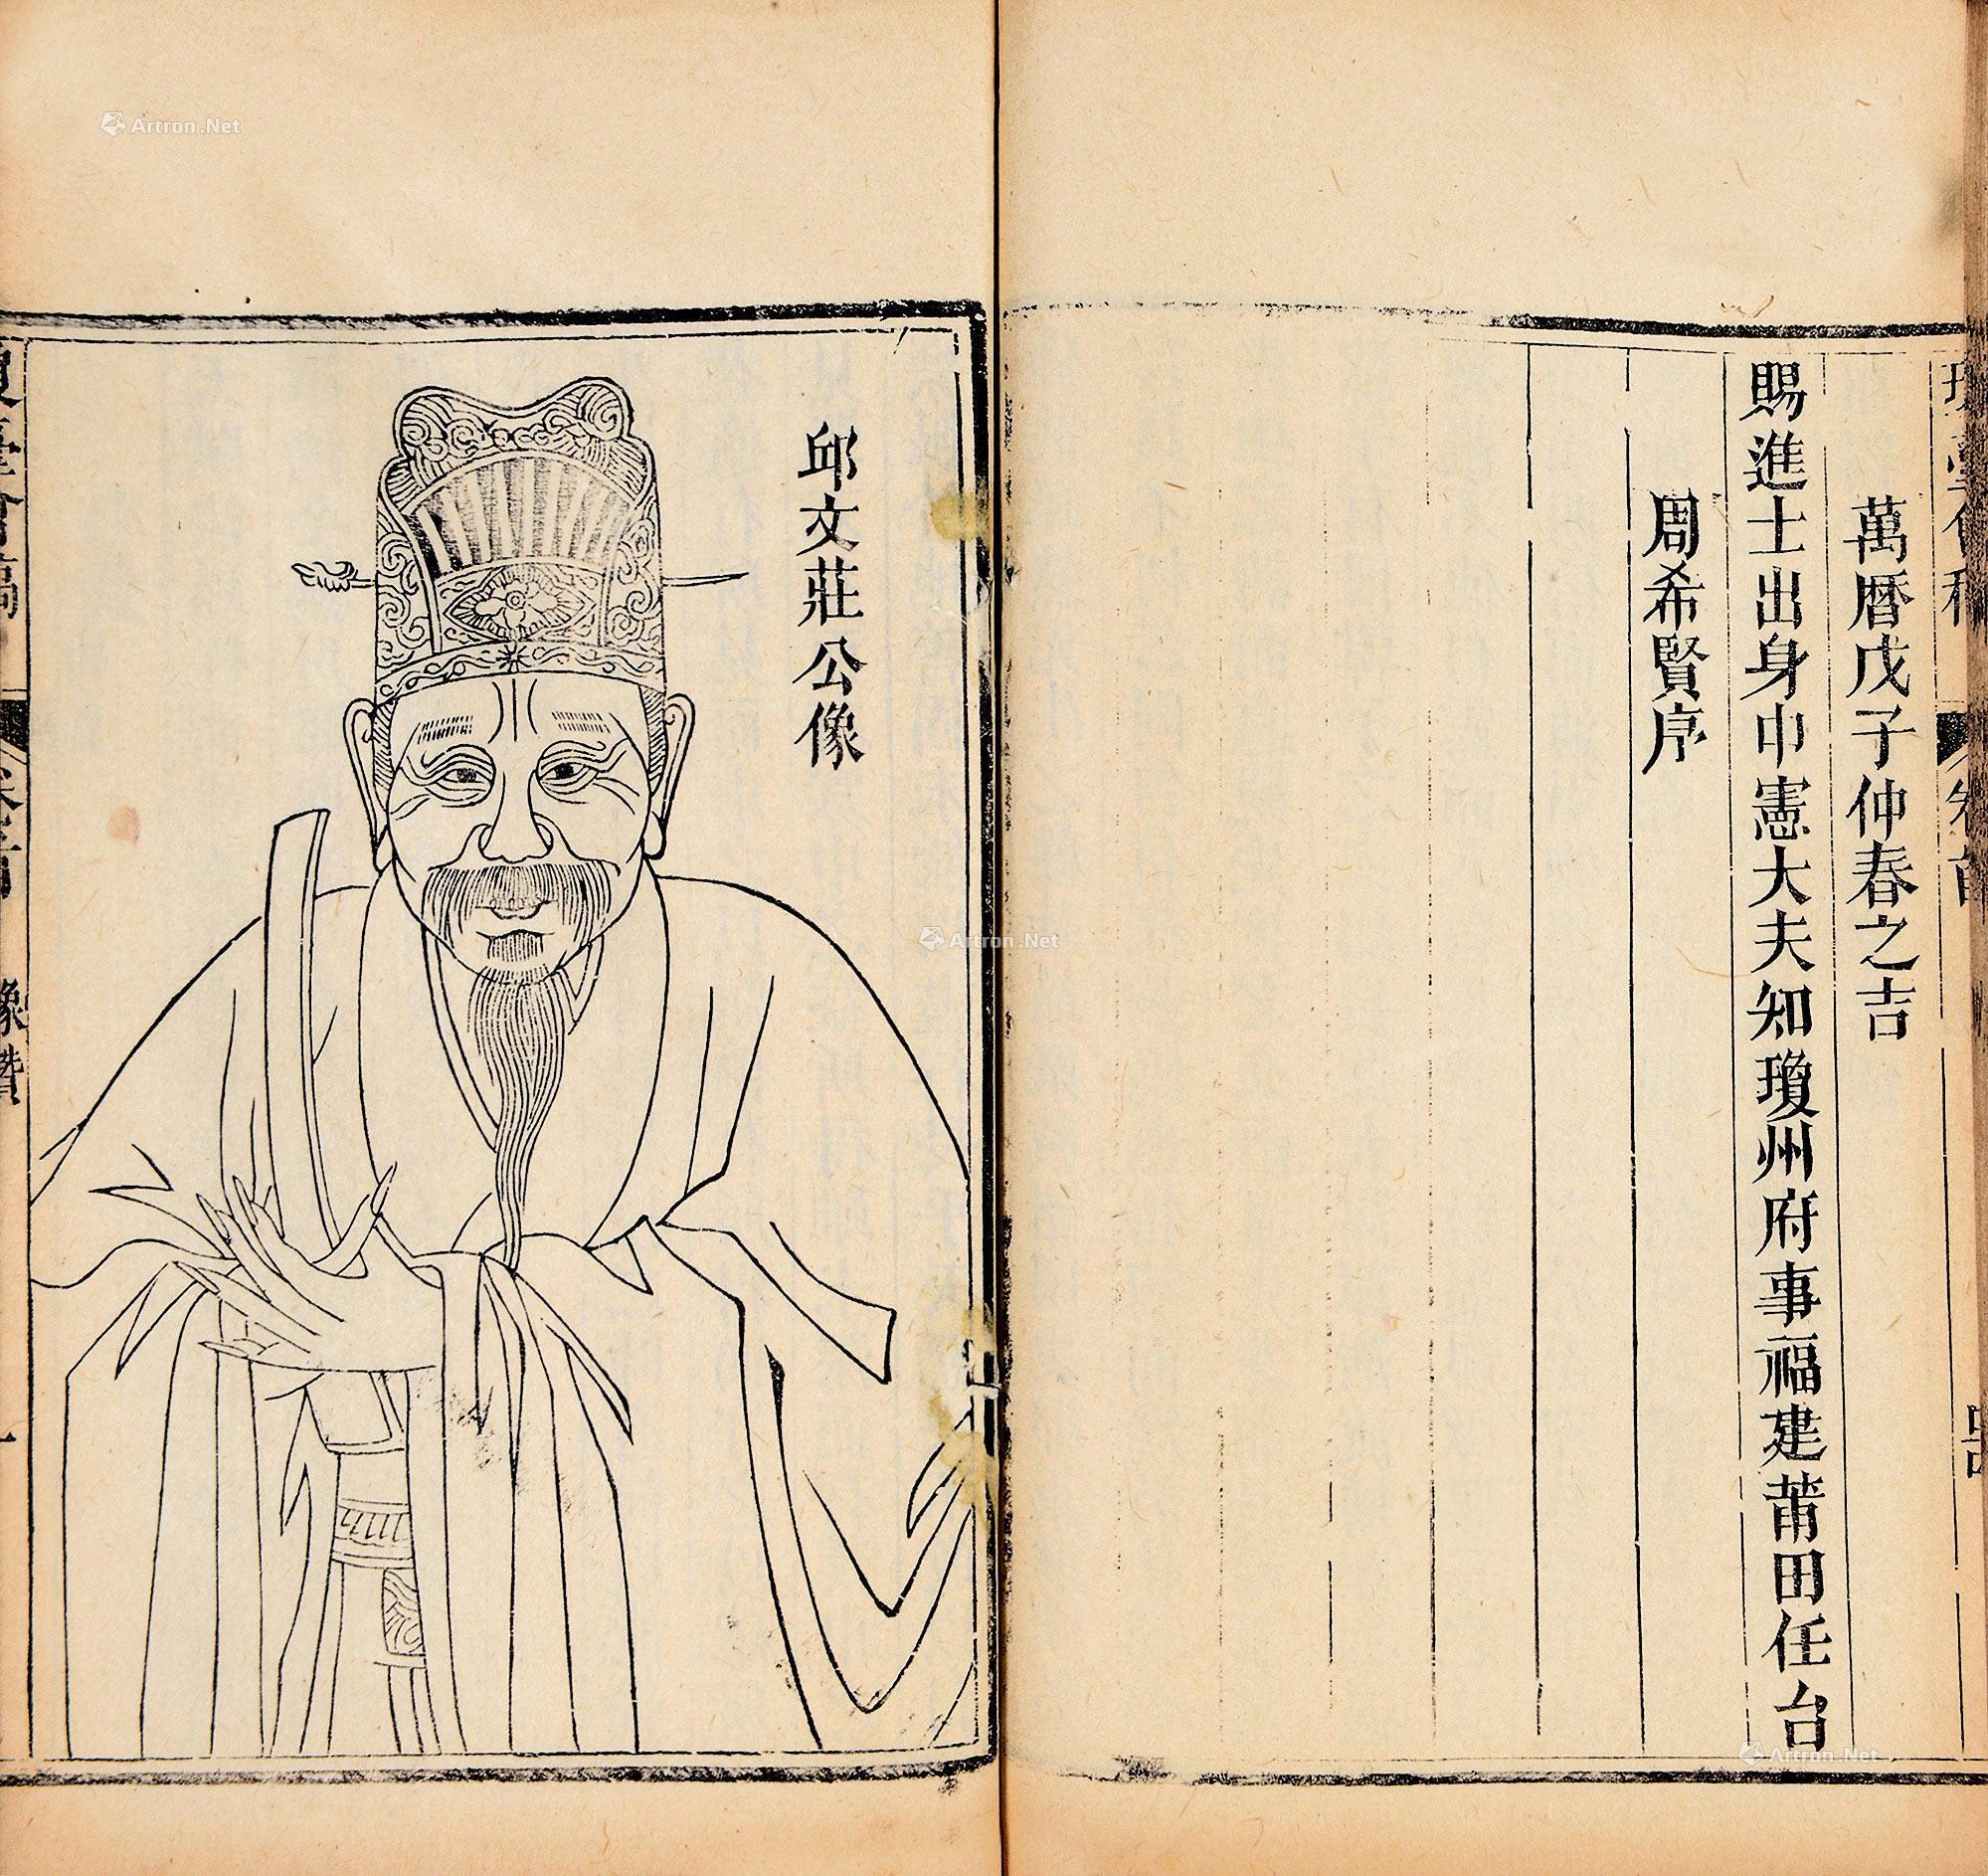 萬曆戊子仲春之吉
賜進士出身中憲大夫知瓊州府事福建莆田任台
周希賢序
邱文莊公像
像贊
一
Artron.Net
Artron.Net
Artron.Net